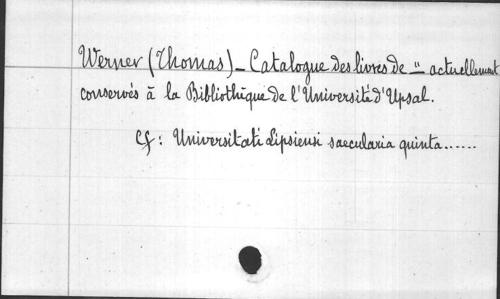 Werner (Thomas) _ Catalogue des livres de _"_ actuellement
conservés à la Bibliothèque de l'Université d'Upsal.
Cf : Universitati Lipsiensi saecularia quinta......